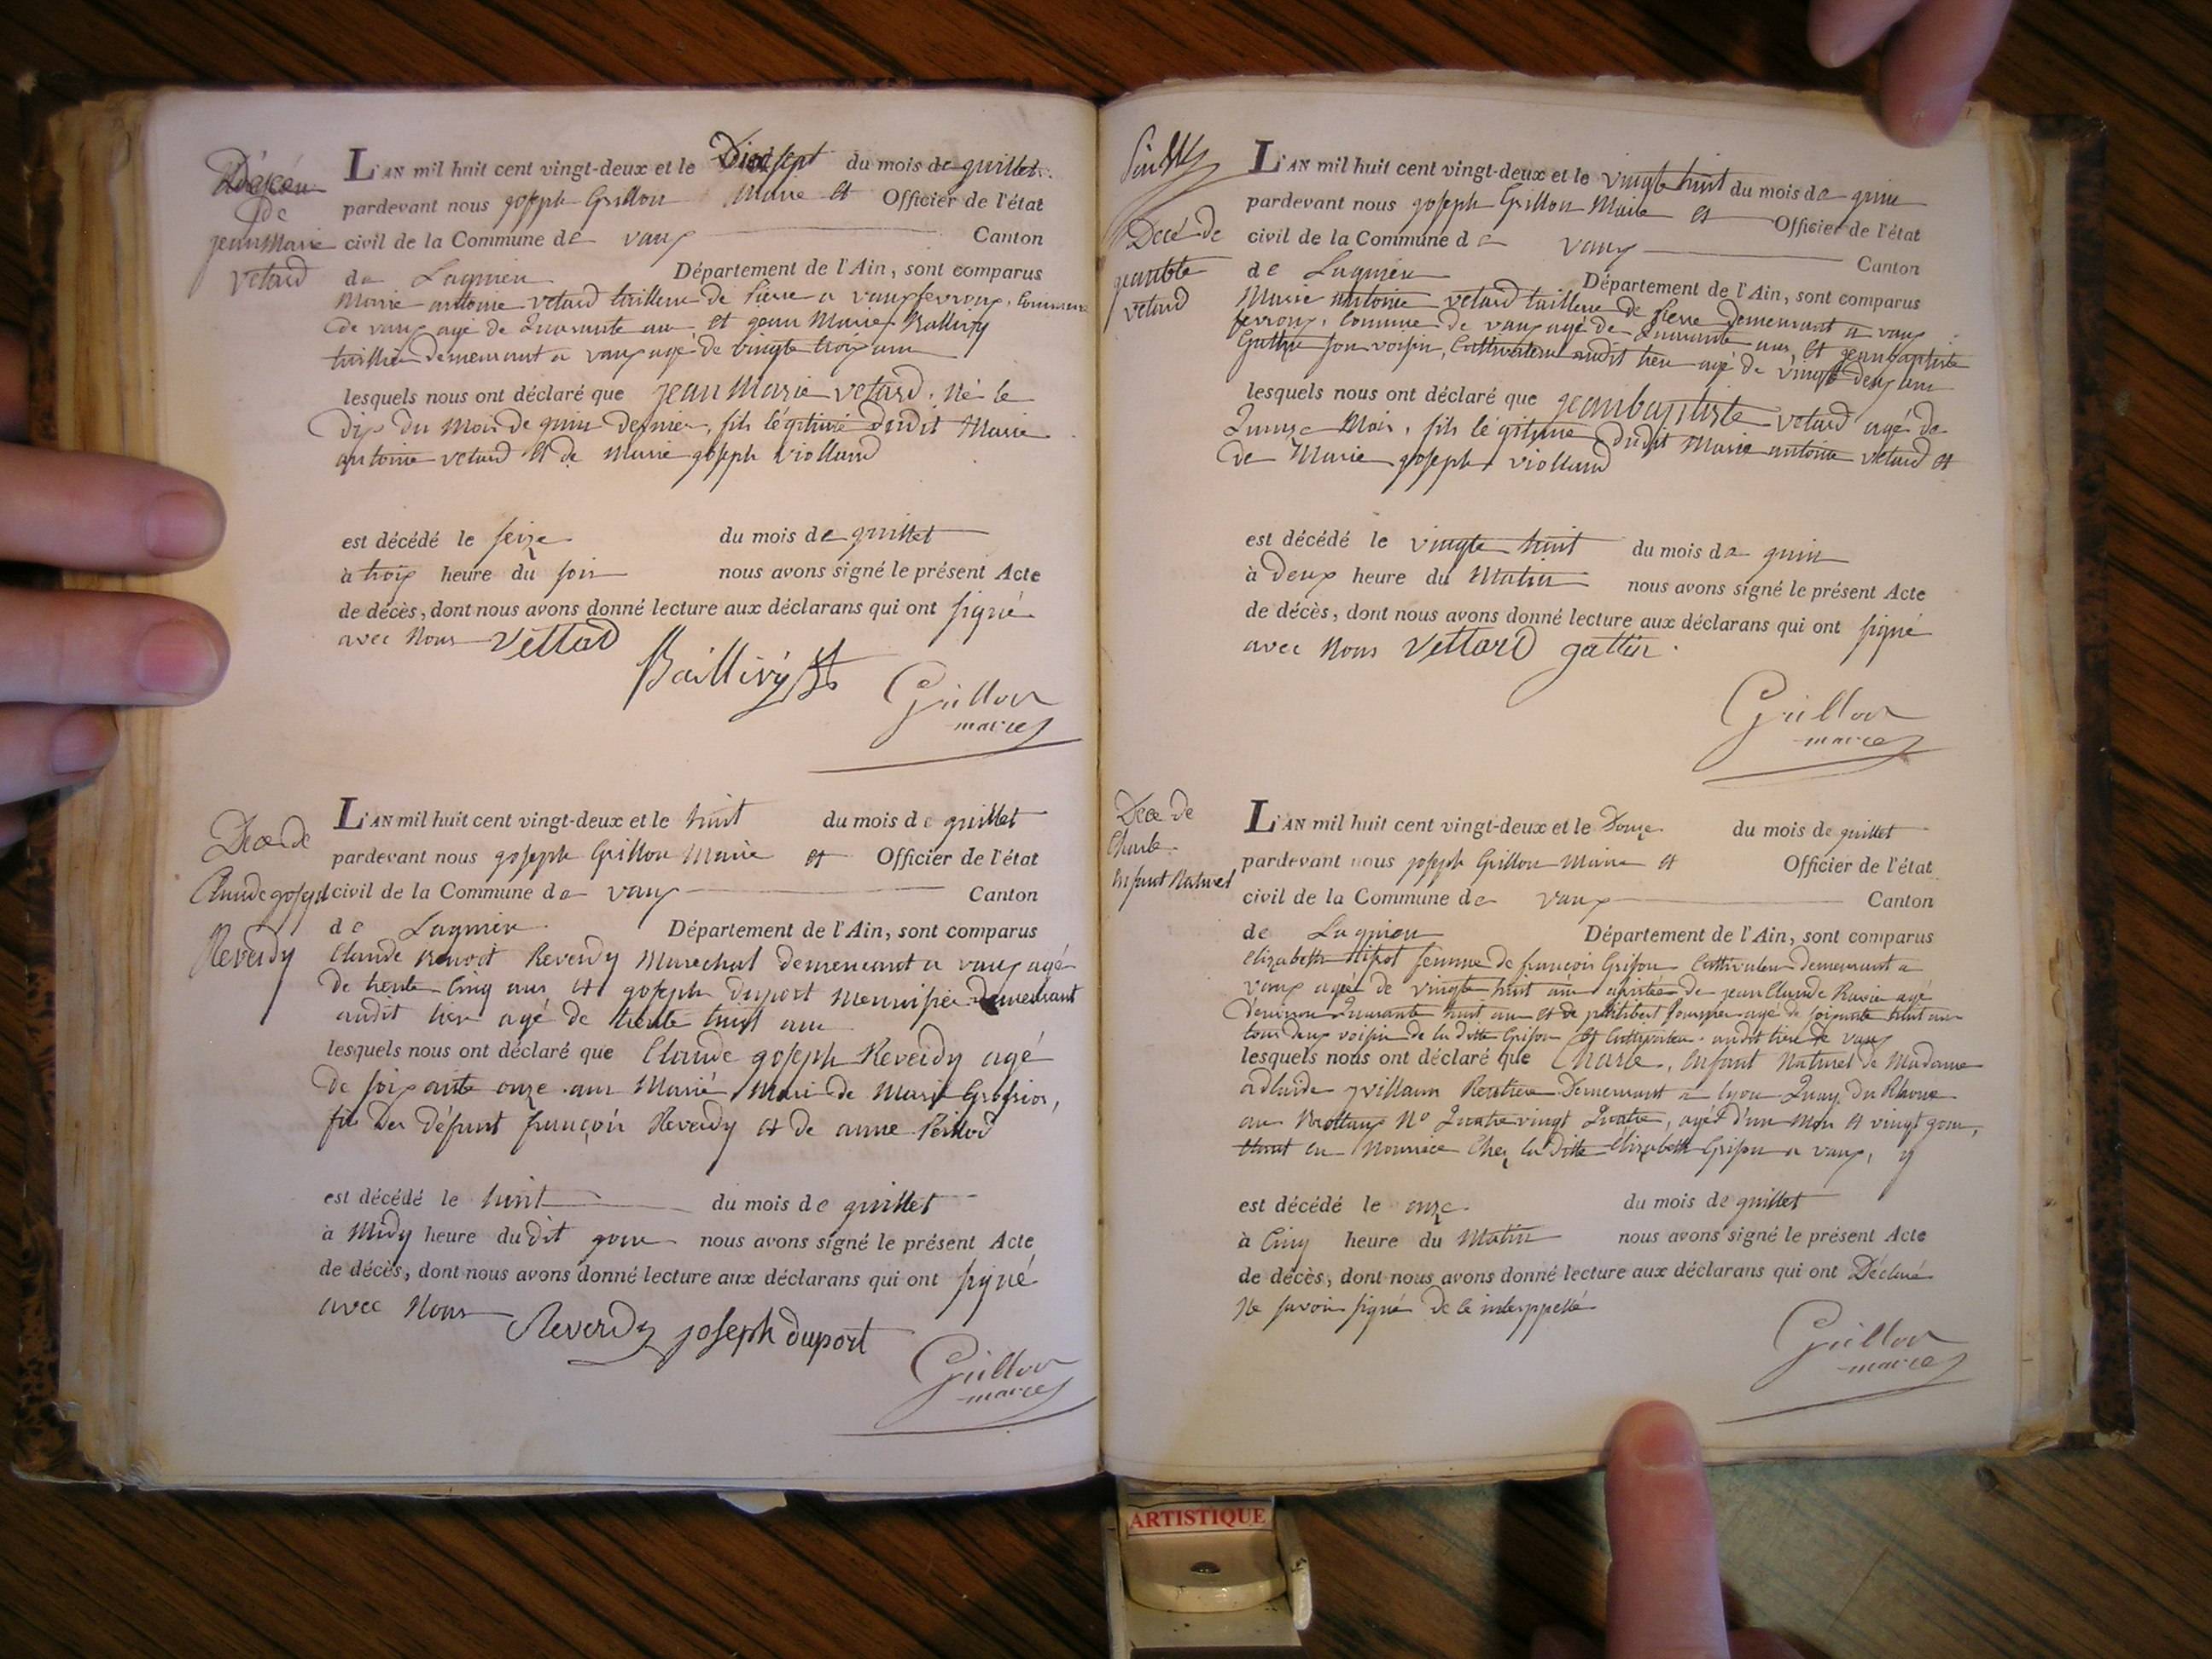 Décéu
de
jean Marie
vetard
L'AN mil huit cent vingt-deux et le Dixsept du mois de guillet.
pardevant nous goseph Grillon Maire et Officier de l'état
civil de la Commune de vaux Canton
de Lagnieu Département de l'Ain, sont comparus
Marie antoine vetard tailleur de Pierre a vaux fevroux, Commune
de vaux agé de Quarante ans et gean Marie Ballivy
demeurant a vaux agé de vingte trois ans
lesquels nous ont déclaré que jean Marie vetard, Né le
Dix du Mois de guin dernier, fils légitime dudit Marie
antoine vetard et de Marie goseph violland
est décédé le seize du mois de guillet
à trois heure du soir nous avons signé le présent Acte
de décès, dont nous avons donné lecture aux déclarans qui ont signé
avec Nous Vettard
Baillivy
Grillon
maire
Dece de
Claude goseph
Reverdy
L'AN mil huit cent vingt-deux et le huit du mois de guillet
pardevant nous goseph Grillon Maire et Officier de l'état
civil de la Commune de vaux Canton
de Lagnieu Département de l'Ain, sont comparus
Claude Benoit Reverdy Marechal demeurant a vaux agé
de trente Cinq ans et goseph duport Menuisier demeurant
audit lieu agé de trente huit ans
lesquels nous ont déclaré que Claude goseph Reverdy agé
de soixante onze ans Marié, Mari de Marie
fils Des défunt françois Reverdy et de anne Perillod
est décédé le huit du mois de guillet
à Midy heure du dit gour nous avons signé le présent Acte
de décès, dont nous avons donné lecture aux déclarans qui ont signé
avec Nous Reverdy joseph duport
Grillon
maire
Dece de
geanbte
vetard
L'AN mil huit cent vingt-deux et le vingte huit du mois de guin
pardevant nous goseph Grillon Maire et Officier de l'état
civil de la Commune de vaux Canton
de Lagnieu Département de l'Ain, sont comparus
Marie antoine vetard tailleur de Pierre demeurant a vaux
fevroux, Commune de vaux agé de Quarante ans, et jean baptiste
Gattin son voisin, Cultivateur audit lieu agé de vingt deux ans
lesquels nous ont déclaré que geanbaptiste vetard agé de
Quinze Mois, fils légitime dudit Marie antoine vetard et
de Marie goseph violland
est décédé le vingte huit du mois de guin
à deux heure du Matin nous avons signé le présent Acte
de décès, dont nous avons donné lecture aux déclarans qui ont signé
avec Nous Vettard gattin.
Grillon
maire
Dece de
Charle
enfant Naturel
L'AN mil huit cent vingt-deux et le Douze du mois de guillet
pardevant nous joseph Grillon Maire et Officier de l'état
civil de la Commune de vaux Canton
de Lagnieu Département de l'Ain, sont comparus
elizabeth femme de françois Grison Cultivateur demeurant a
vaux agée de vingte huit ans de jean Claude Ravier agé
Denviron Quarante huit ans et de philibert agé de soixante huit ans
tous deux voisin de la ditte Grison et Cultivateur audit lieu de vaux
lesquels nous ont déclaré que Charle, enfant Naturel de Madame
adlaide Rentiere Demeurant a lyon Quay du Rhone
au Brottaux No Quatre vingt Quatre, agé d'un Mois et vingt gour,
étant en Nourrice Chez la ditte élizabeth Grison a vaux, y
est décédé le onze du mois de guillet
à Cinq heure du Matin nous avons signé le présent Acte
de décès, dont nous avons donné lecture aux déclarans qui ont Déclaré
Ne savoir signé de ce interppellé
Grillon
maire
ARTISTIQUE